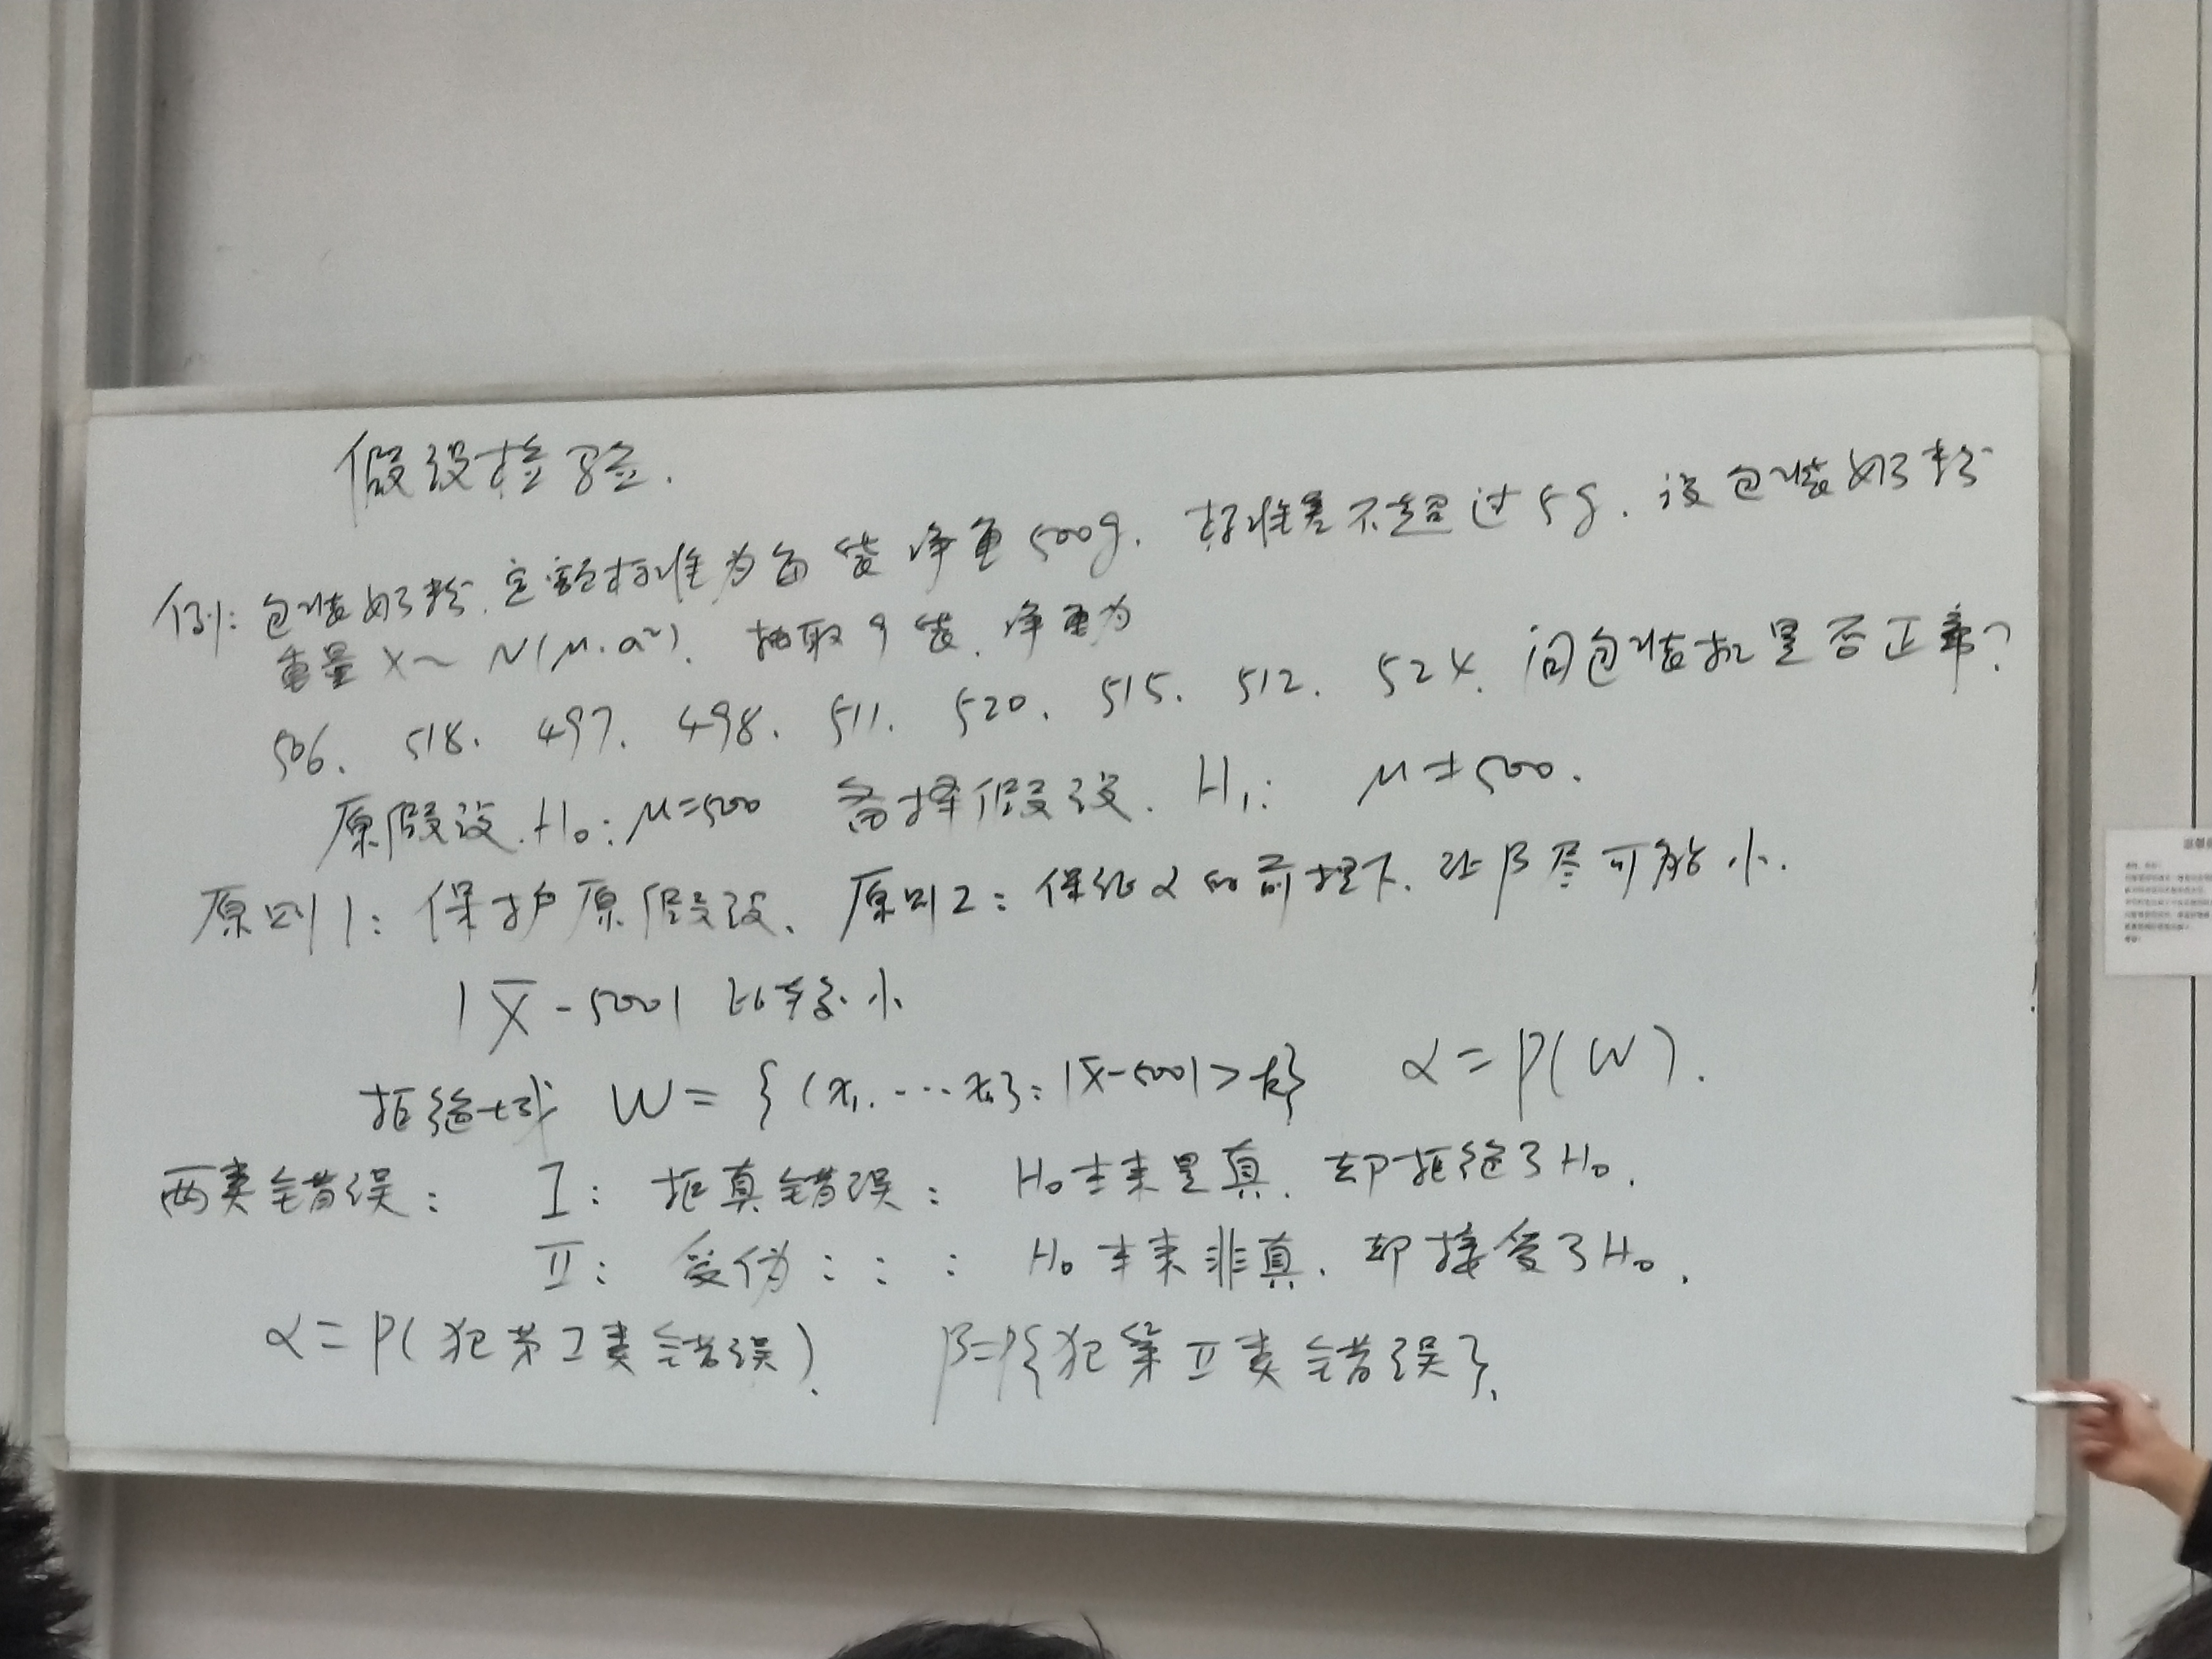 假设检验.
例: 包装奶粉, 定额标准为每袋净重500g, 标准差不超过5g. 设包装奶粉
重量 X~N(μ, σ²). 抽取9袋, 净重为
506、518、497、498、511、520、515、512、524. 问包装机是否正常?
原假设. H₀: μ=500 备择假设. H₁: μ≠500.
原则1: 保护原假设、 原则2: 保证α的前提下, 让β尽可能小.
|X̄-500| 比较小
拒绝域 W={(x₁, ⋯xₙ): |X̄-500|>k} α=P(W).
两类错误: I: 拒真错误: H₀本来是真, 却拒绝了H₀.
II: 受伪: : : H₀本来非真, 却接受了H₀.
α=P(犯第I类错误). β=P{犯第II类错误}.